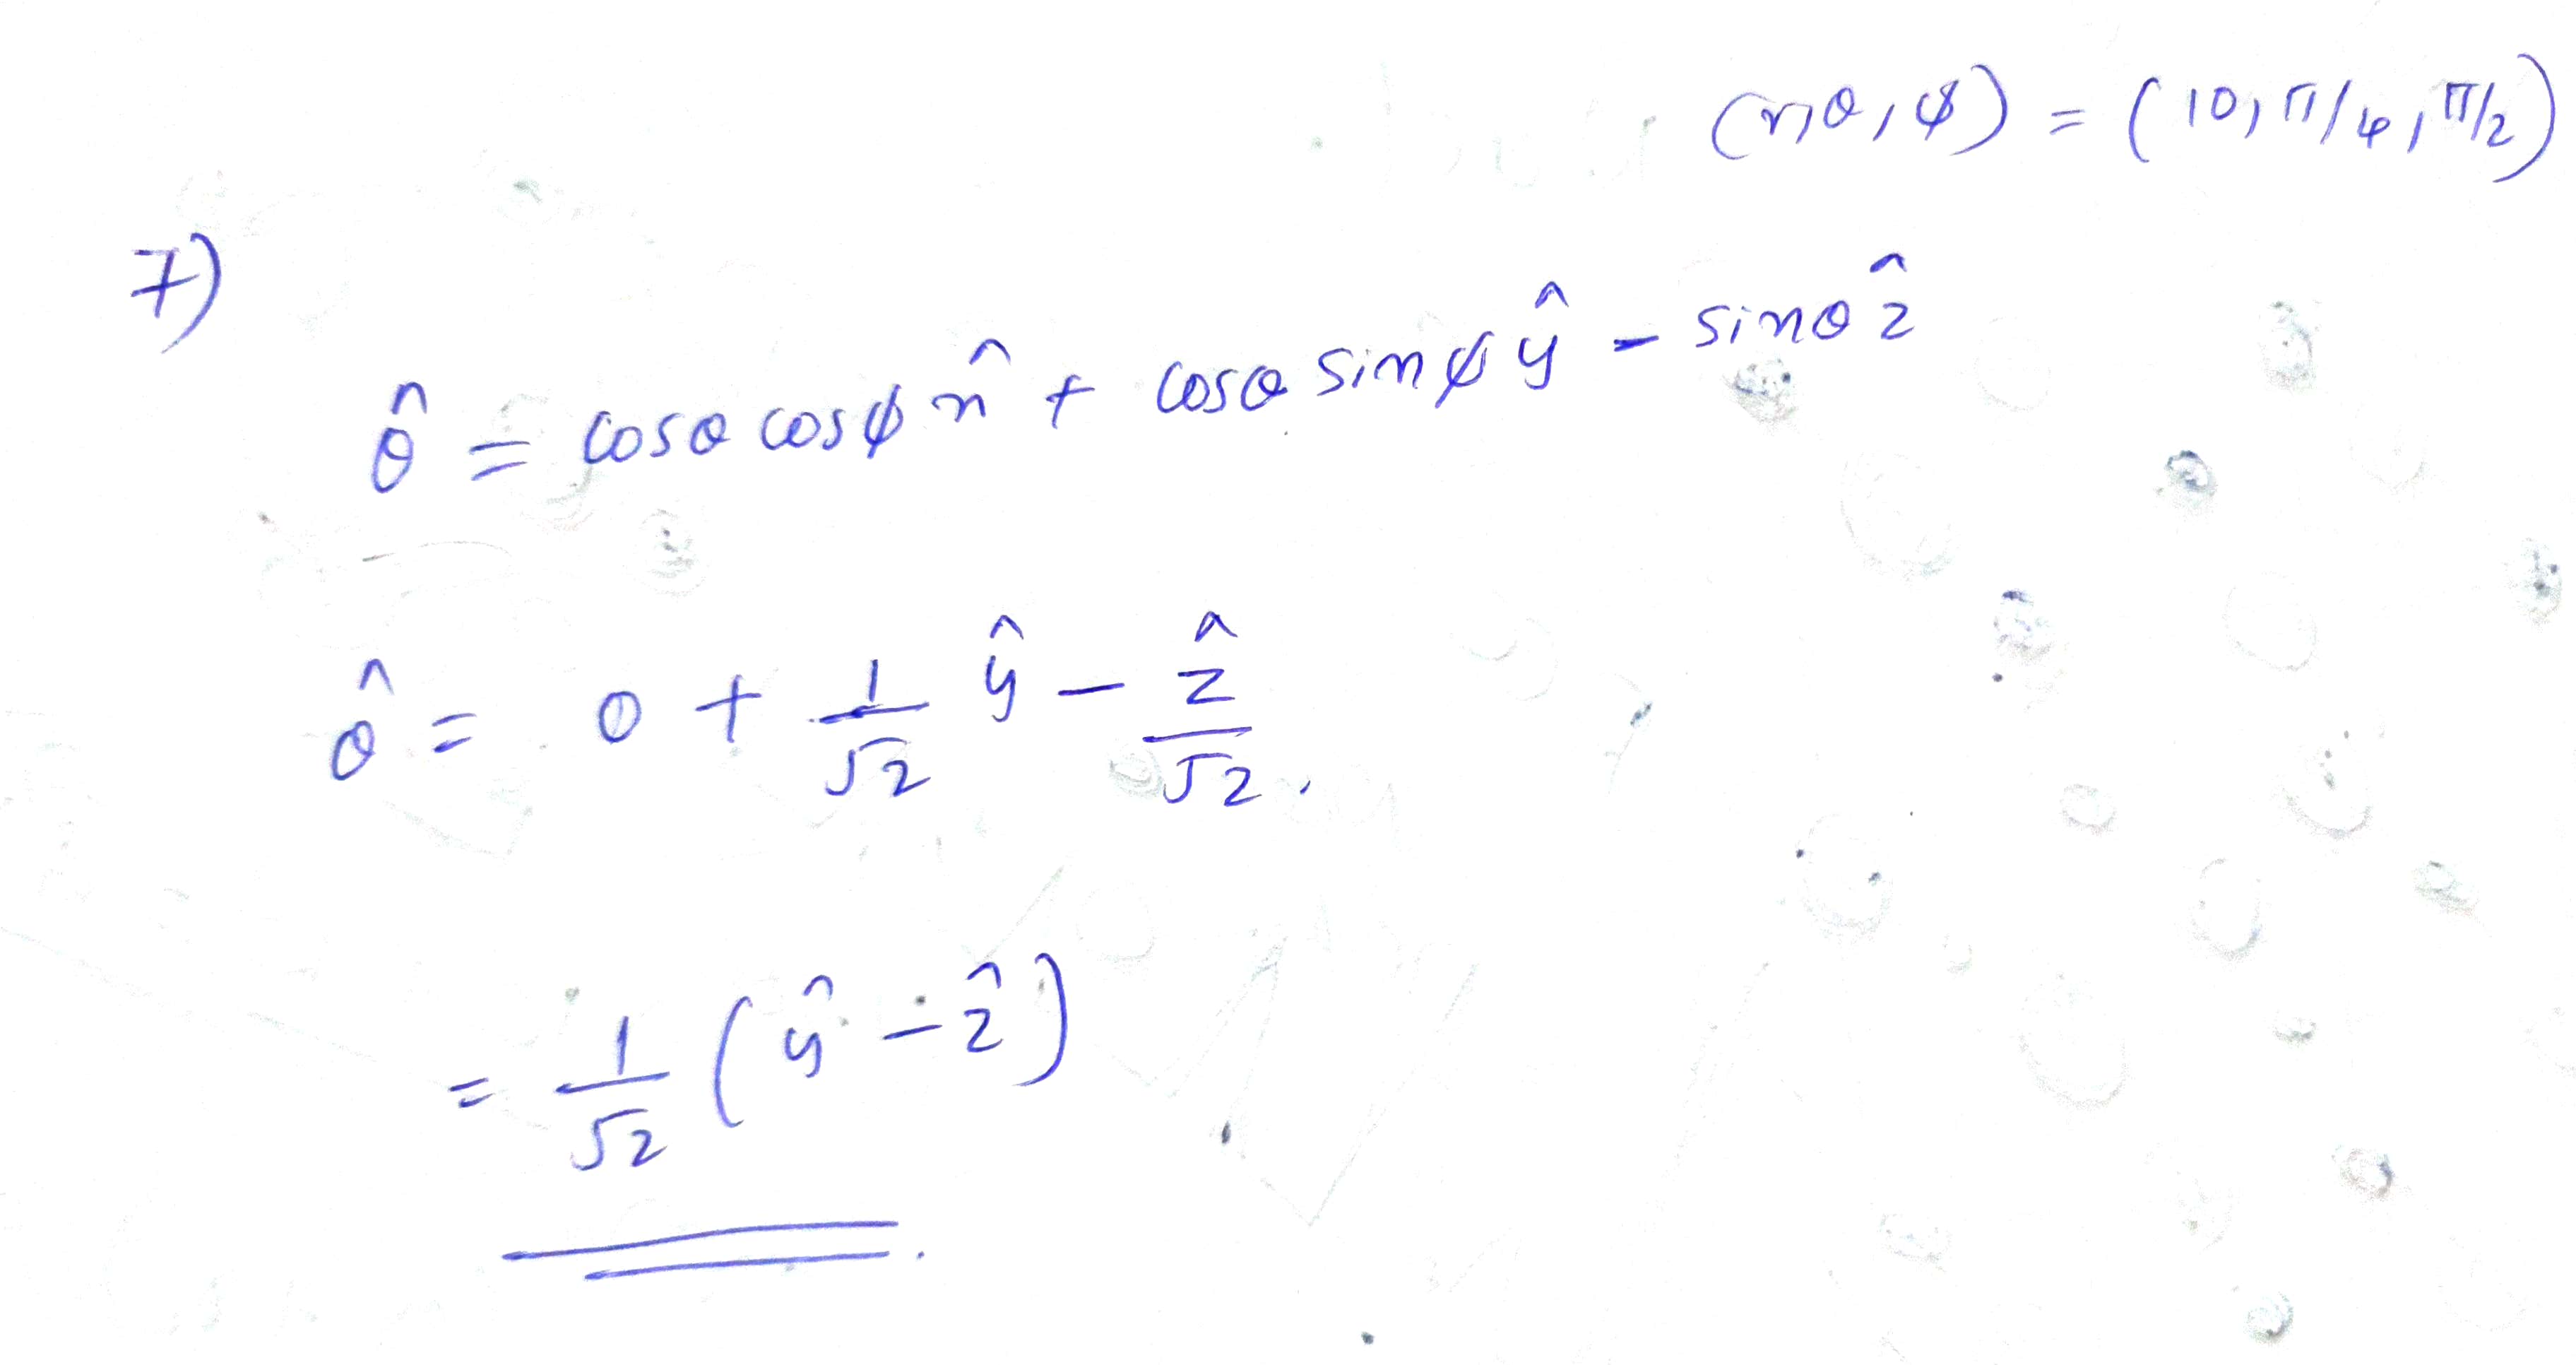 (r,θ,ϕ) = (10, π/4, π/2)
7)
θ̂ = cosθ cosϕ x̂ + cosθ sinϕ ŷ - sinθ ẑ
θ̂ = 0 + 1/√2 ŷ - ẑ/√2.
= 1/√2 (ŷ - ẑ)